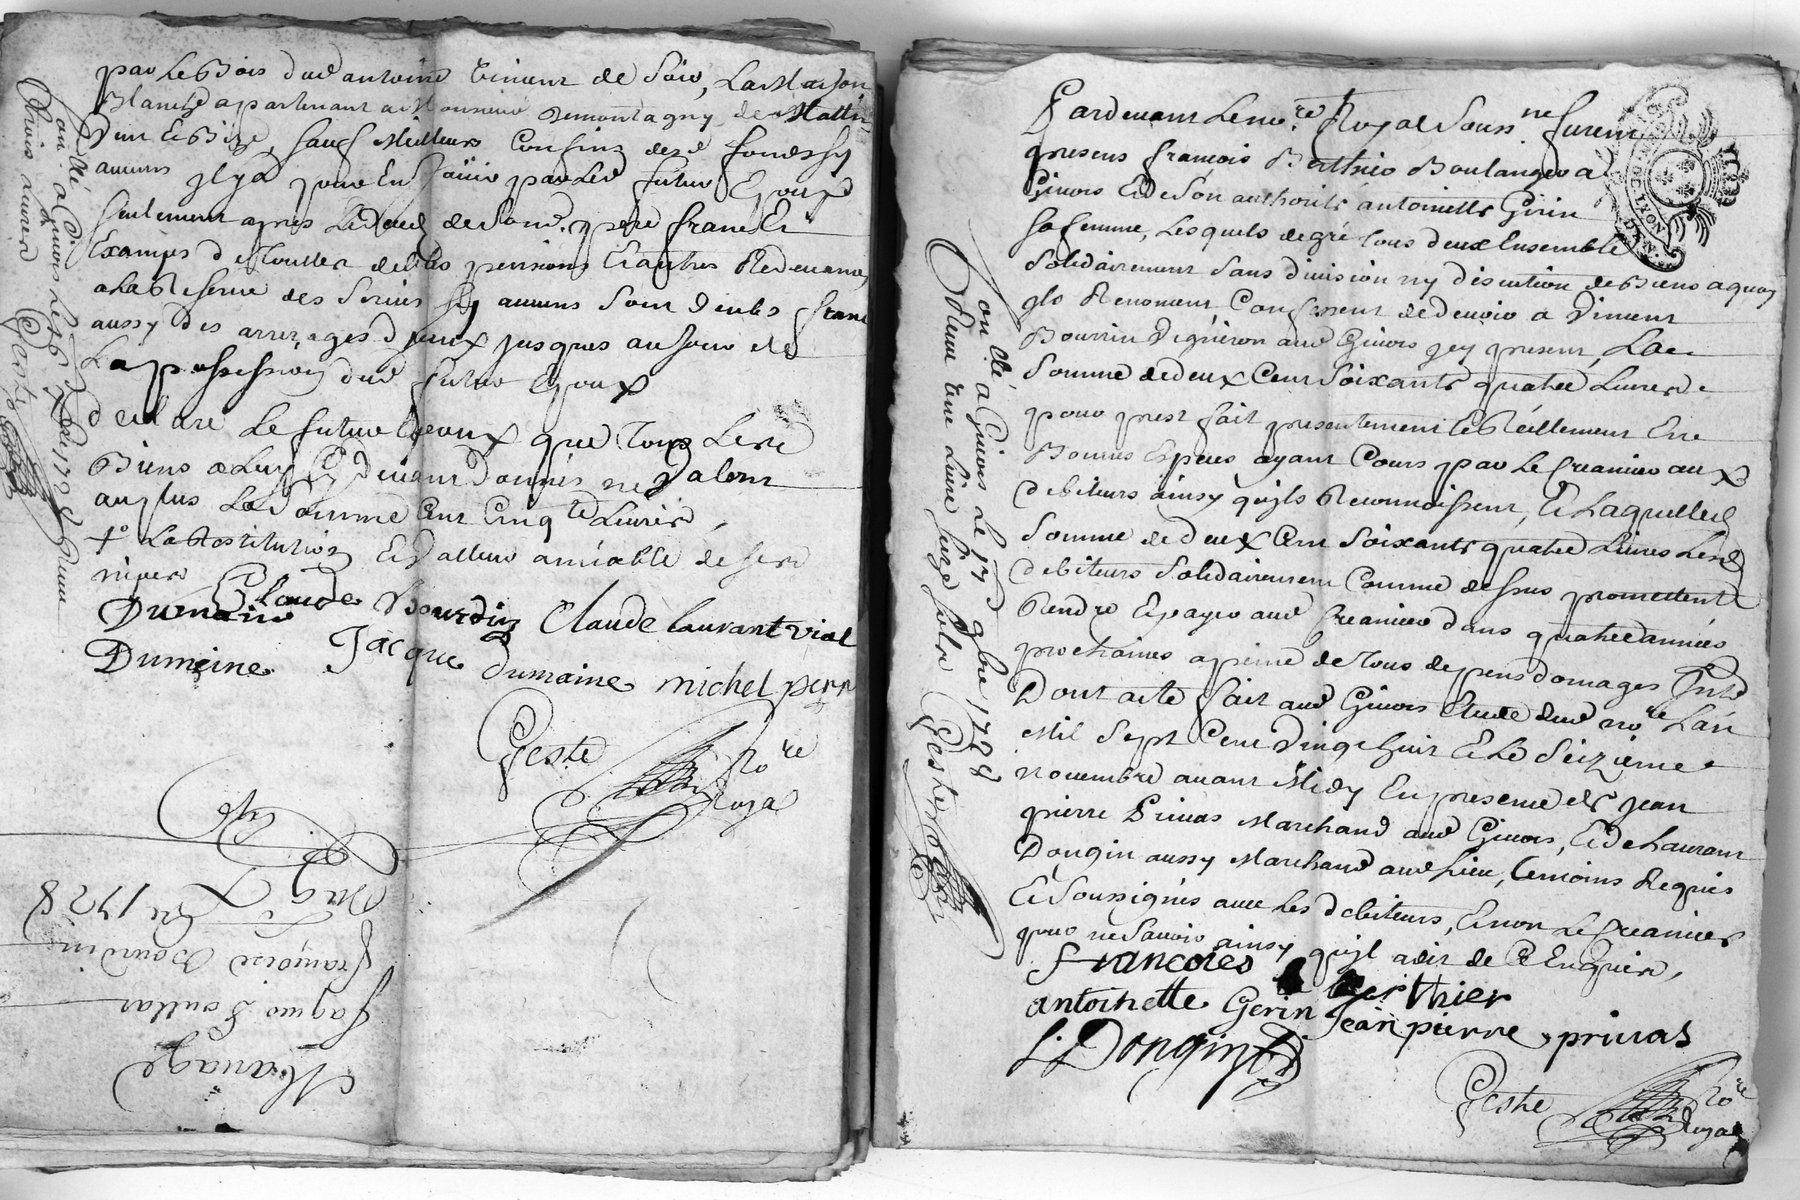 par le bois dud antoine
Blanche apartenant a Monsieur Remontagny de
sauf Meilleurs Confins
aucuns jl y a pour En jouir par Led futur Epoux
seulement apres Le deced de sond. pere franc Et
Exampt de toutte debtes pensions Et autres Redevances
a la Reserve des servis sy aucuns sont deubs franc
aussy des arrerages d'jceux jusques au jour de
La possession dud futur Epoux
declare Le futur Epoux que tous Lesd
Biens a Luy Cy devant donnés ne valent
au plus La somme Cent Cinqte Livres,
+ La Restitution Et valleur amiable de
Dumaine Claude Bourdin Claude Laurant vial
Dumeine Jacque dumaine michel perr
Geste No.re
Roya
Controllé a Givors Le 1728 Reçu
trois Livres Geste
Mariage
Jaques
françoise Bourdin
1728
Pardevant Le no.re Royal Souss.né furent
presens françois Berthier Boulanger a
Givors Et de son authorité antoinette Girin
sa femme, Lesquels de gré tous deux Ensemble
solidairement sans division ny discution de Biens a quoy
jls Renoncent, Confessent de devoir a vincent
Bourrin vigneron aud Givors jcy present, La
somme de deux Cent soixante quatre Livres
pour prest fait presentement Et Réellement En
Bonnes Especes ayant Cours par Le Creancier aux
debiteurs ainsy qu'jls Reconnoissent, Et Laquelle
somme de deux Cent soixante quatre Livres Lesd
debiteurs solidairement Comme dessus promettent
Rendre Et payer aud Creancier dans quatre années
prochaines a peine de tous depens domages
Dont acte fait aud Givors Etude dud no.re L'an
Mil sept Cent vingt huit Et Le seizieme
novembre avant Midy En presence de jean
pierre Privas Marchand aud Givors, Et de Laurant
Dongin aussy Marchand aud Lieu, temoins Requis
Et soussignés avec Les debiteurs, Et non Le Creancier
pour ne savoir ainsy qu'jl a dit de Ce Enquis,
francoies berthier
antoinette Gerin Jean pierre privas
L. Dongin
Geste No.re
Royal
Controllé a Givors Le 17 9bre 1728
Reçu une Livre seize sols Geste
LYON